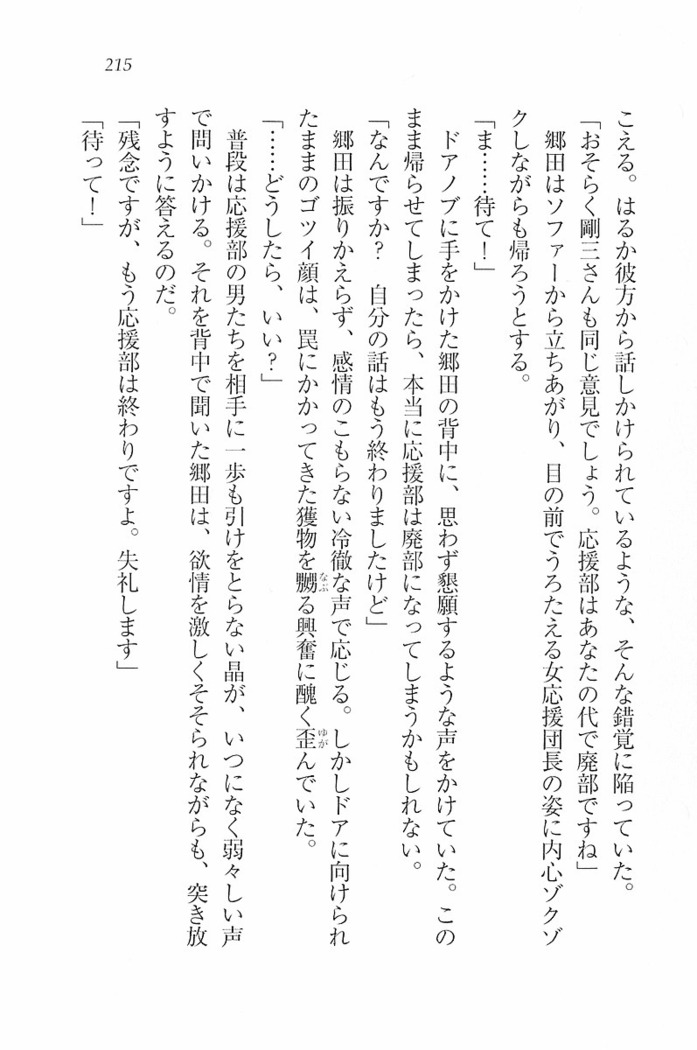 215
こえる。はるか彼方から話しかけられているような、そんな錯覚に陥っていた。
「おそらく剛三さんも同じ意見でしょう。応援部はあなたの代で廃部ですね」
郷田はソファーから立ちあがり、目の前でうろたえる女応援団長の姿に内心ゾクゾ
クしながらも帰ろうとする。
「ま……待て！」
ドアノブに手をかけた郷田の背中に、思わず懇願するような声をかけていた。この
まま帰らせてしまったら、本当に応援部は廃部になってしまうかもしれない。
「なんですか？　自分の話はもう終わりましたけど」
郷田は振りかえらず、感情のこもらない冷徹な声で応じる。しかしドアに向けられ
たままのゴツイ顔は、罠にかかってきた獲物を嬲なぶる興奮に醜く歪ゆがんでいた。
「……どうしたら、いい？」
普段は応援部の男たちを相手に一歩も引けをとらない晶が、いつになく弱々しい声
で問いかける。それを背中で聞いた郷田は、欲情を激しくそそられながらも、突き放
すように答えるのだ。
「残念ですが、もう応援部は終わりですよ。失礼します」
「待って！」